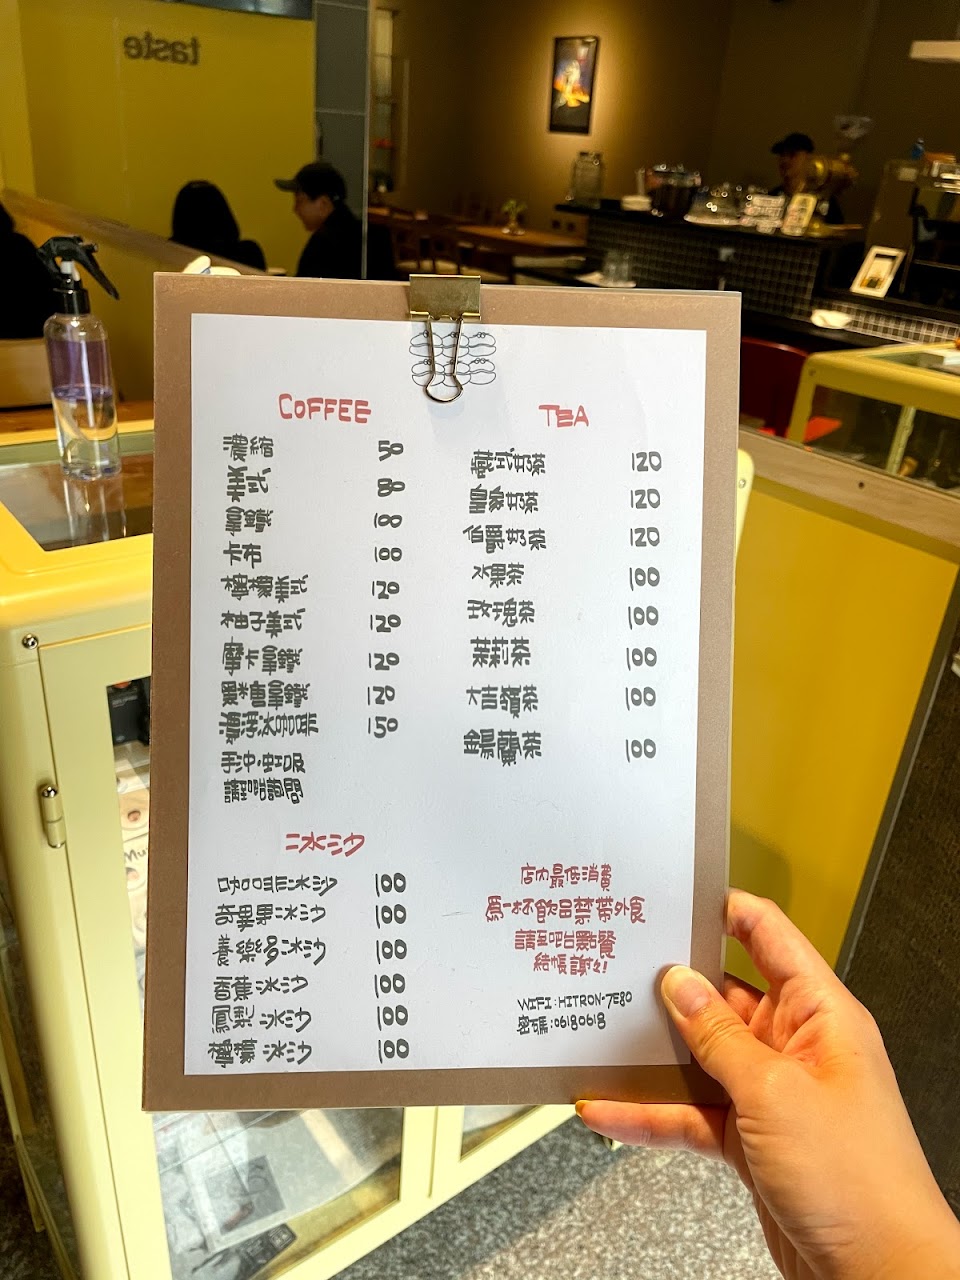 taste
COFFEE
濃縮 50
美式 80
拿鐵 100
卡布 100
檸檬美式 120
柚子美式 120
摩卡拿鐵 120
黑糖拿鐵 120
漂浮冰咖啡 150
手沖.虹吸
請至吧台詢問
冰沙
咖啡冰沙 100
奇異果冰沙 100
養樂多冰沙 100
香蕉冰沙 100
鳳梨冰沙 100
檸檬冰沙 100
TEA
藏式奶茶 120
皇家奶茶 120
伯爵奶茶 120
水果茶 100
玫瑰茶 100
茉莉茶 100
大吉嶺茶 100
錫蘭茶 100
店內最低消費
為一杯飲品禁帶外食
請至吧台點餐
結帳謝々!
WIFI:HITRON-7E80
密碼:06180618